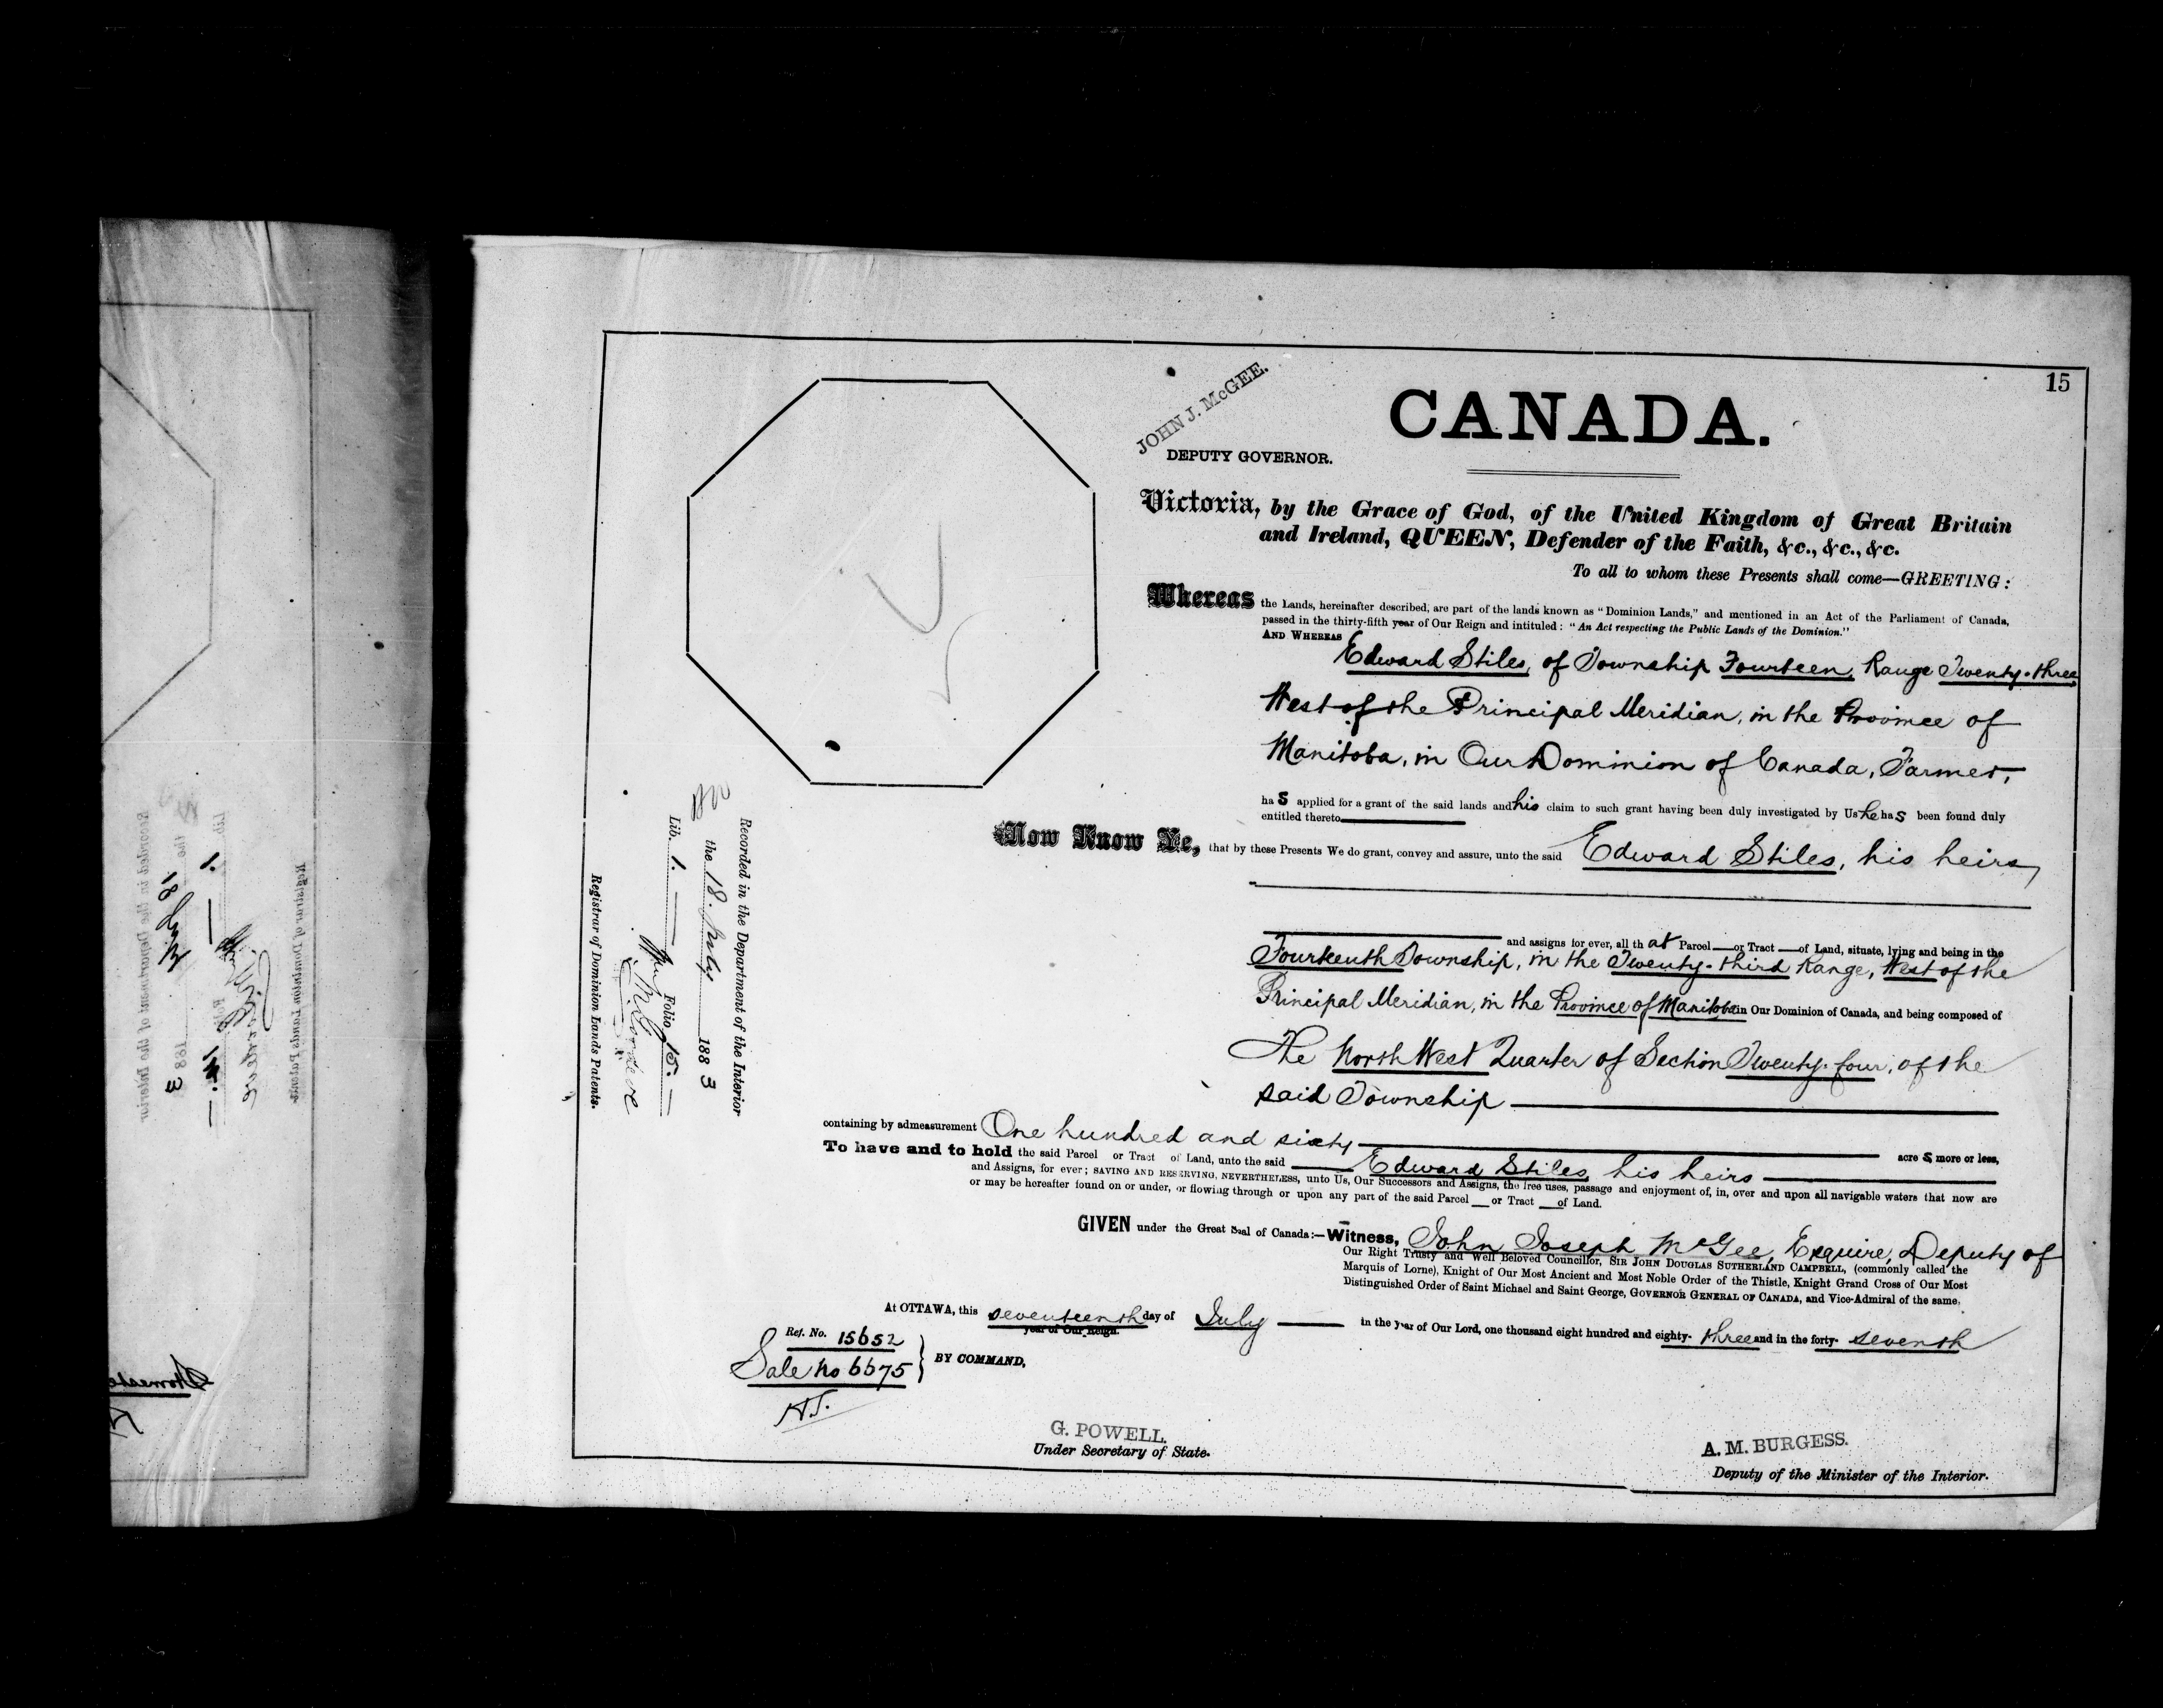 15
JOHN J. McGEE.
DEPUTY GOVERNOR.
CANADA.
Victoria, by the Grace of God, of the United Kingdom of Great Britain
and Ireland, QUEEN, Defender of the Faith, &c., &c., &c.
To all to whom these Presents shall come—GREETING:
Whereas the Lands, hereinafter described, are part of the lands known as "Dominion Lands," and mentioned in an Act of the Parliament of Canada,
passed in the thirty-fifth year of Our Reign and intituled: "An Act respecting the Public Lands of the Dominion."
AND WHEREAS
Edward Stiles, of Township Fourteen, Range Twenty-three
West of the Principal Meridian, in the Province of
Manitoba, in Our Dominion of Canada, Farmer,
has applied for a grant of the said lands and his claim to such grant having been duly investigated by Us he has been found duly
entitled thereto
Now Know Ye, that by these Presents We do grant, convey and assure, unto the said Edward Stiles, his heirs
and assigns for ever, all that Parcel or Tract of Land, situate, lying and being in the
Fourteenth Township, in the Twenty-third Range, West of the
Principal Meridian, in the Province of Manitoba in Our Dominion of Canada, and being composed of
The North West Quarter of Section Twenty-four, of the
said Township
containing by admeasurement One hundred and sixty acres more or less,
To have and to hold the said Parcel or Tract of Land, unto the said Edward Stiles, his heirs
and Assigns, for ever; SAVING AND RESERVING, NEVERTHELESS, unto Us, Our Successors and Assigns, the free uses, passage and enjoyment of, in, over and upon all navigable waters that now are
or may be hereafter found on or under, or flowing through or upon any part of the said Parcel or Tract of Land.
GIVEN under the Great Seal of Canada:—Witness, John Joseph McGee, Esquire, Deputy of
Our Right Trusty and Well Beloved Councillor, SIR JOHN DOUGLAS SUTHERLAND CAMPBELL, (commonly called the
Marquis of Lorne), Knight of Our Most Ancient and Most Noble Order of the Thistle, Knight Grand Cross of Our Most
Distinguished Order of Saint Michael and Saint George, GOVERNOR GENERAL OF CANADA, and Vice-Admiral of the same.
At OTTAWA, this seventeenth day of July in the year of Our Lord, one thousand eight hundred and eighty-three and in the forty-seventh
year of Our Reign.
Ref. No. 15652
Sale No 6675
BY COMMAND,
G. POWELL.
Under Secretary of State.
A. M. BURGESS.
Deputy of the Minister of the Interior.
Recorded in the Department of the Interior
the 18. July 1883
Lib. 1. Folio 15.
Registrar of Dominion Lands Patents.